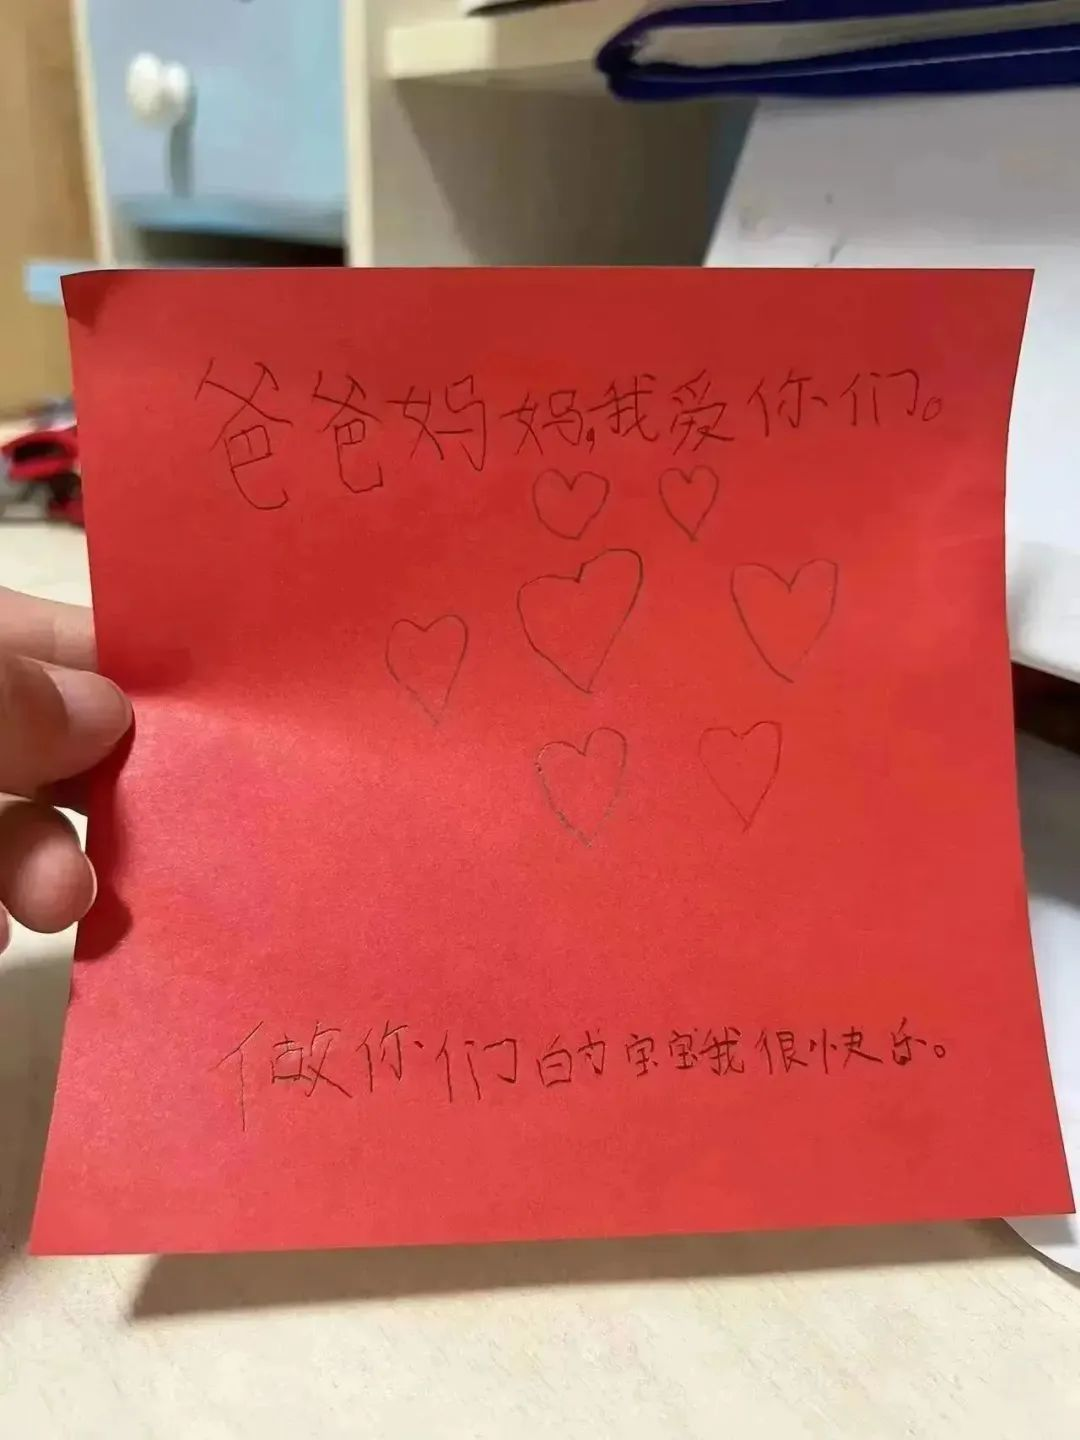 爸爸妈妈,我爱你们。
做你们的宝宝我很快乐。